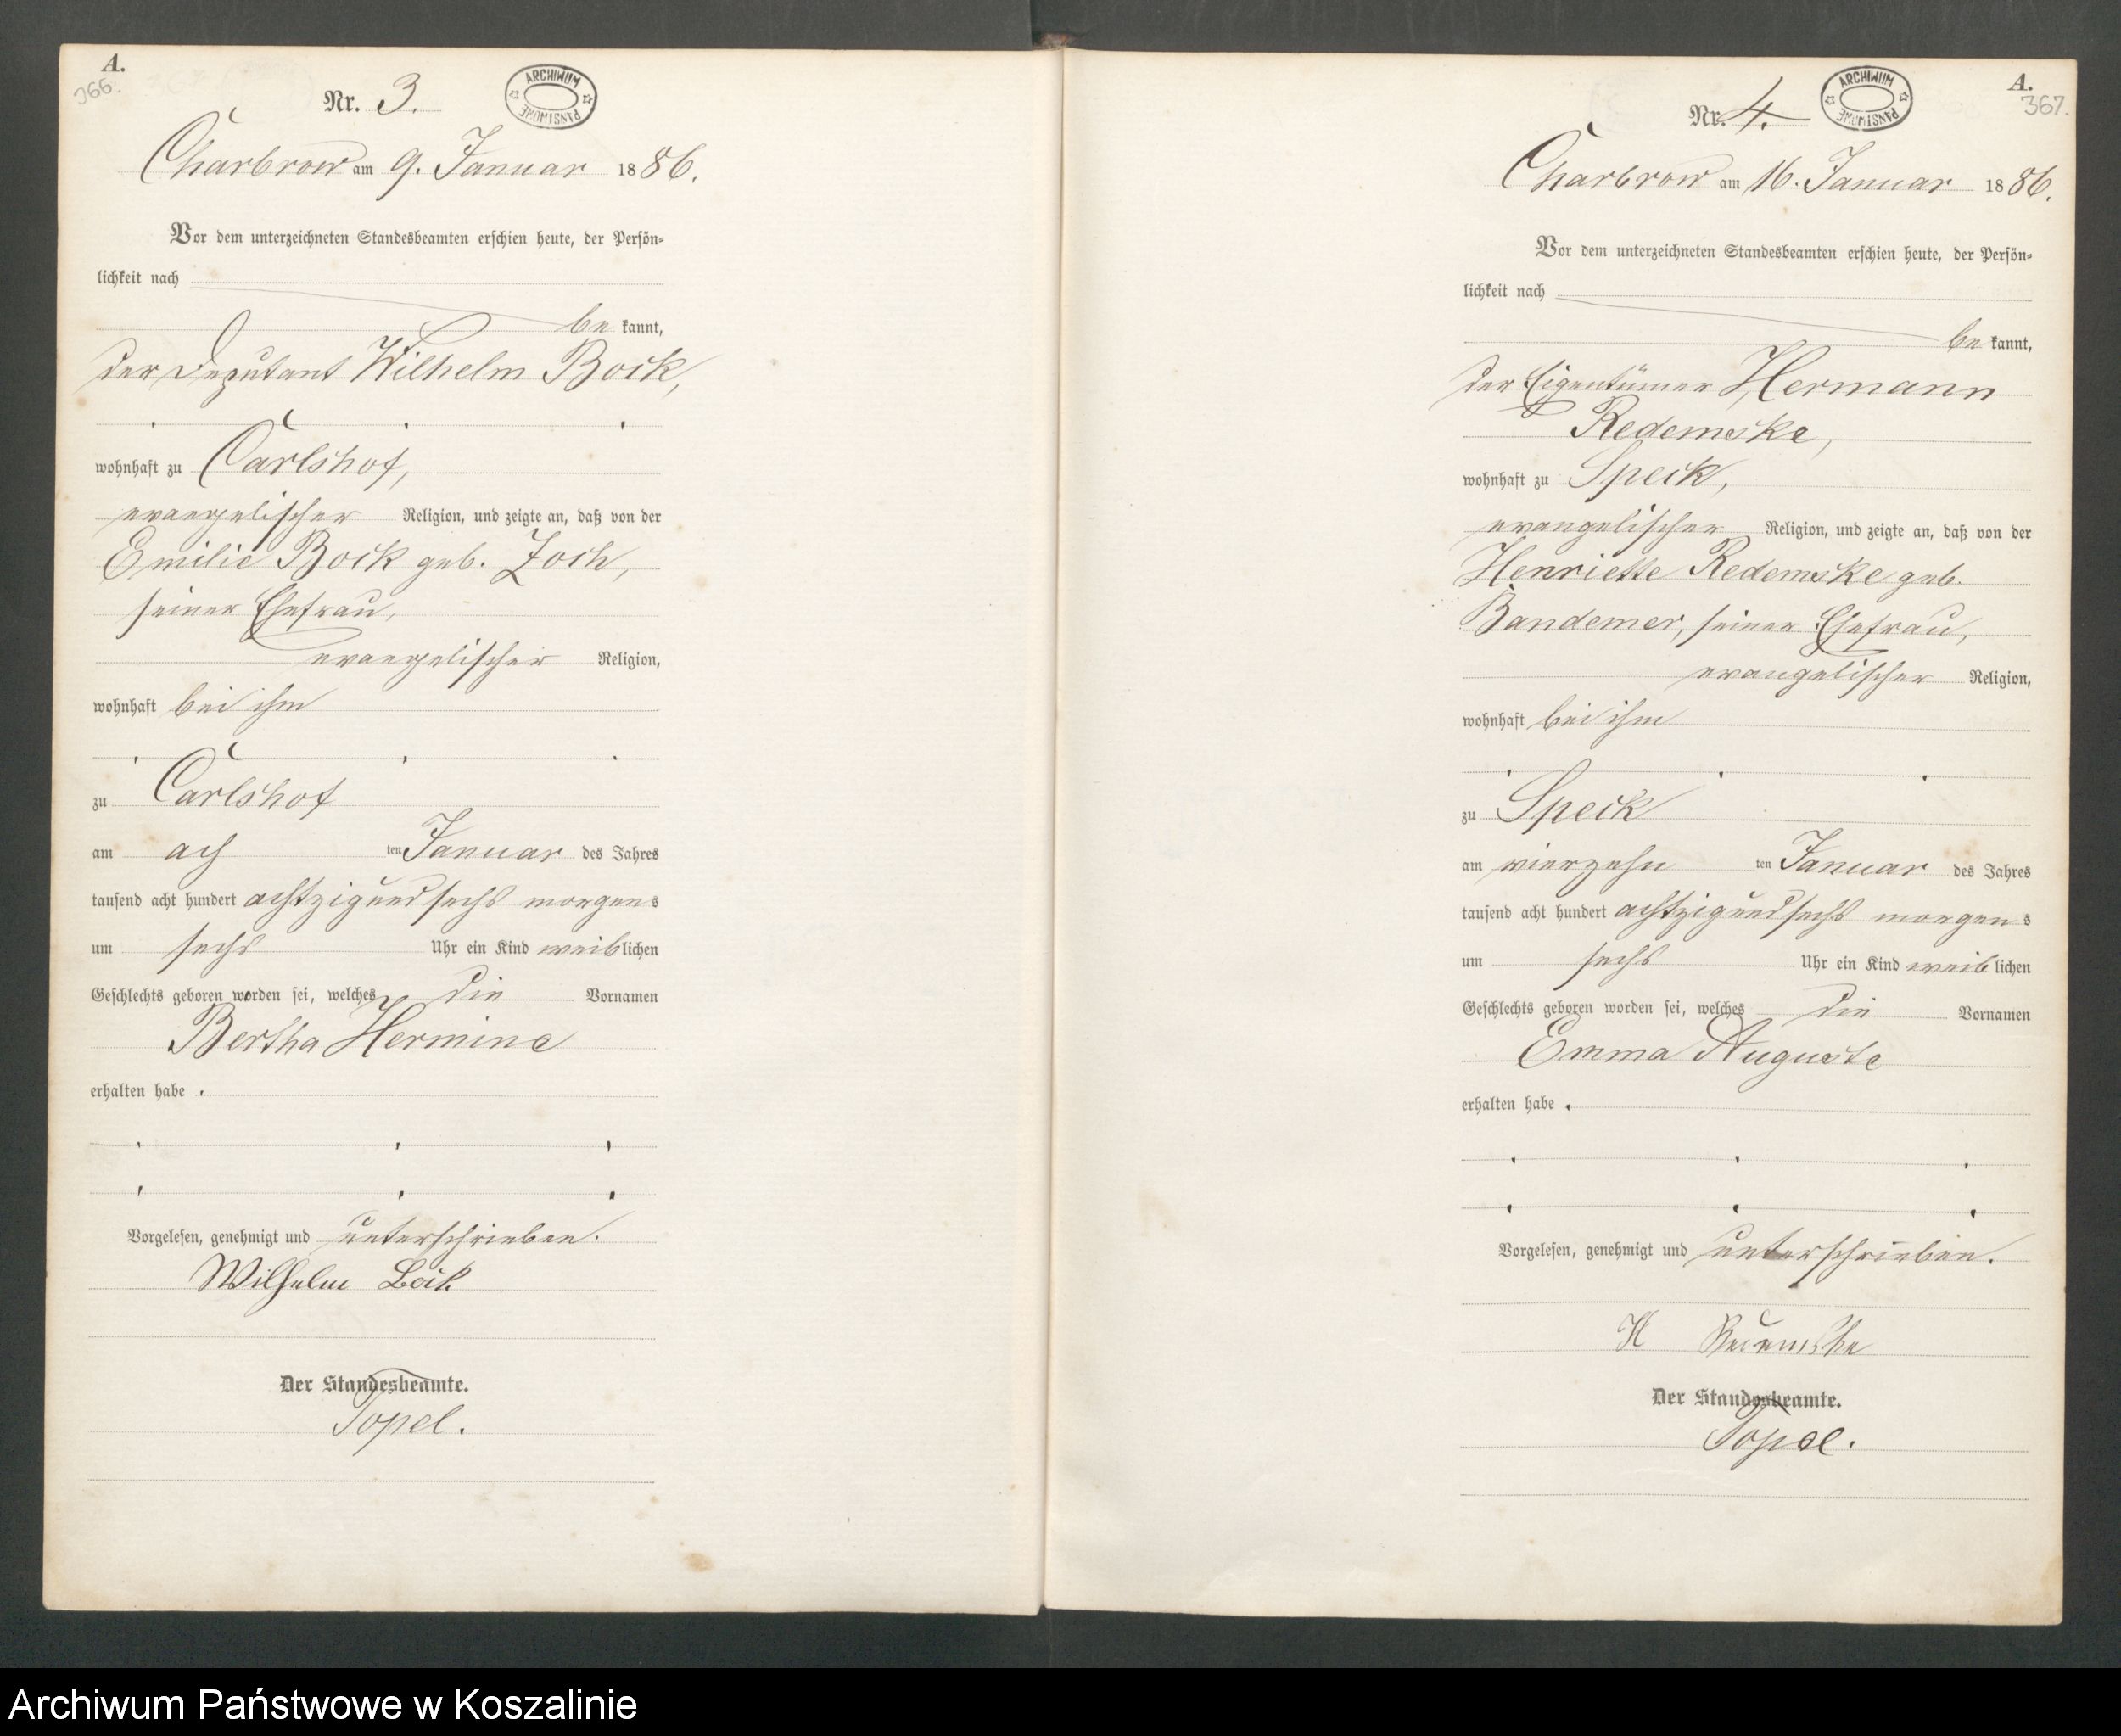 A.
366.
Nr. 3.
ARCHIWUM PAŃSTWOWE
Charbrow am 9. Januar 1886.
Vor dem unterzeichneten Standesbeamten erschien heute, der Persön-
lichkeit nach
be kannt,
der Deputant Wilhelm Bock,
wohnhaft zu Carlshof,
evangelischer Religion, und zeigte an, daß von der
Emilie Bock geb. Zoch,
seiner Ehefrau,
evangelischer Religion,
wohnhaft bei ihm
zu Carlshof
am ach ten Januar des Jahres
tausend acht hundert achtzig und sechs morgens
um sechs Uhr ein Kind weiblichen
Geschlechts geboren worden sei, welches die Vornamen
Bertha Hermine
erhalten habe.
Vorgelesen, genehmigt und unterschrieben.
Wilhelm Bock
Der Standesbeamte.
Topel.
A.
367.
Nr. 4.
ARCHIWUM PAŃSTWOWE
Charbrow am 16. Januar 1886.
Vor dem unterzeichneten Standesbeamten erschien heute, der Persön-
lichkeit nach
be kannt,
der Eigentümer Hermann
Redemske,
wohnhaft zu Speck,
evangelischer Religion, und zeigte an, daß von der
Henriette Redemske geb.
Bandemer, seiner Ehefrau,
evangelischer Religion,
wohnhaft bei ihm
zu Speck
am vierzehn ten Januar des Jahres
tausend acht hundert achtzig und sechs morgens
um sechs Uhr ein Kind weiblichen
Geschlechts geboren worden sei, welches die Vornamen
Emma Auguste
erhalten habe.
Vorgelesen, genehmigt und unterschrieben.
H Redemske
Der Standesbeamte.
Topel.
Archiwum Państwowe w Koszalinie